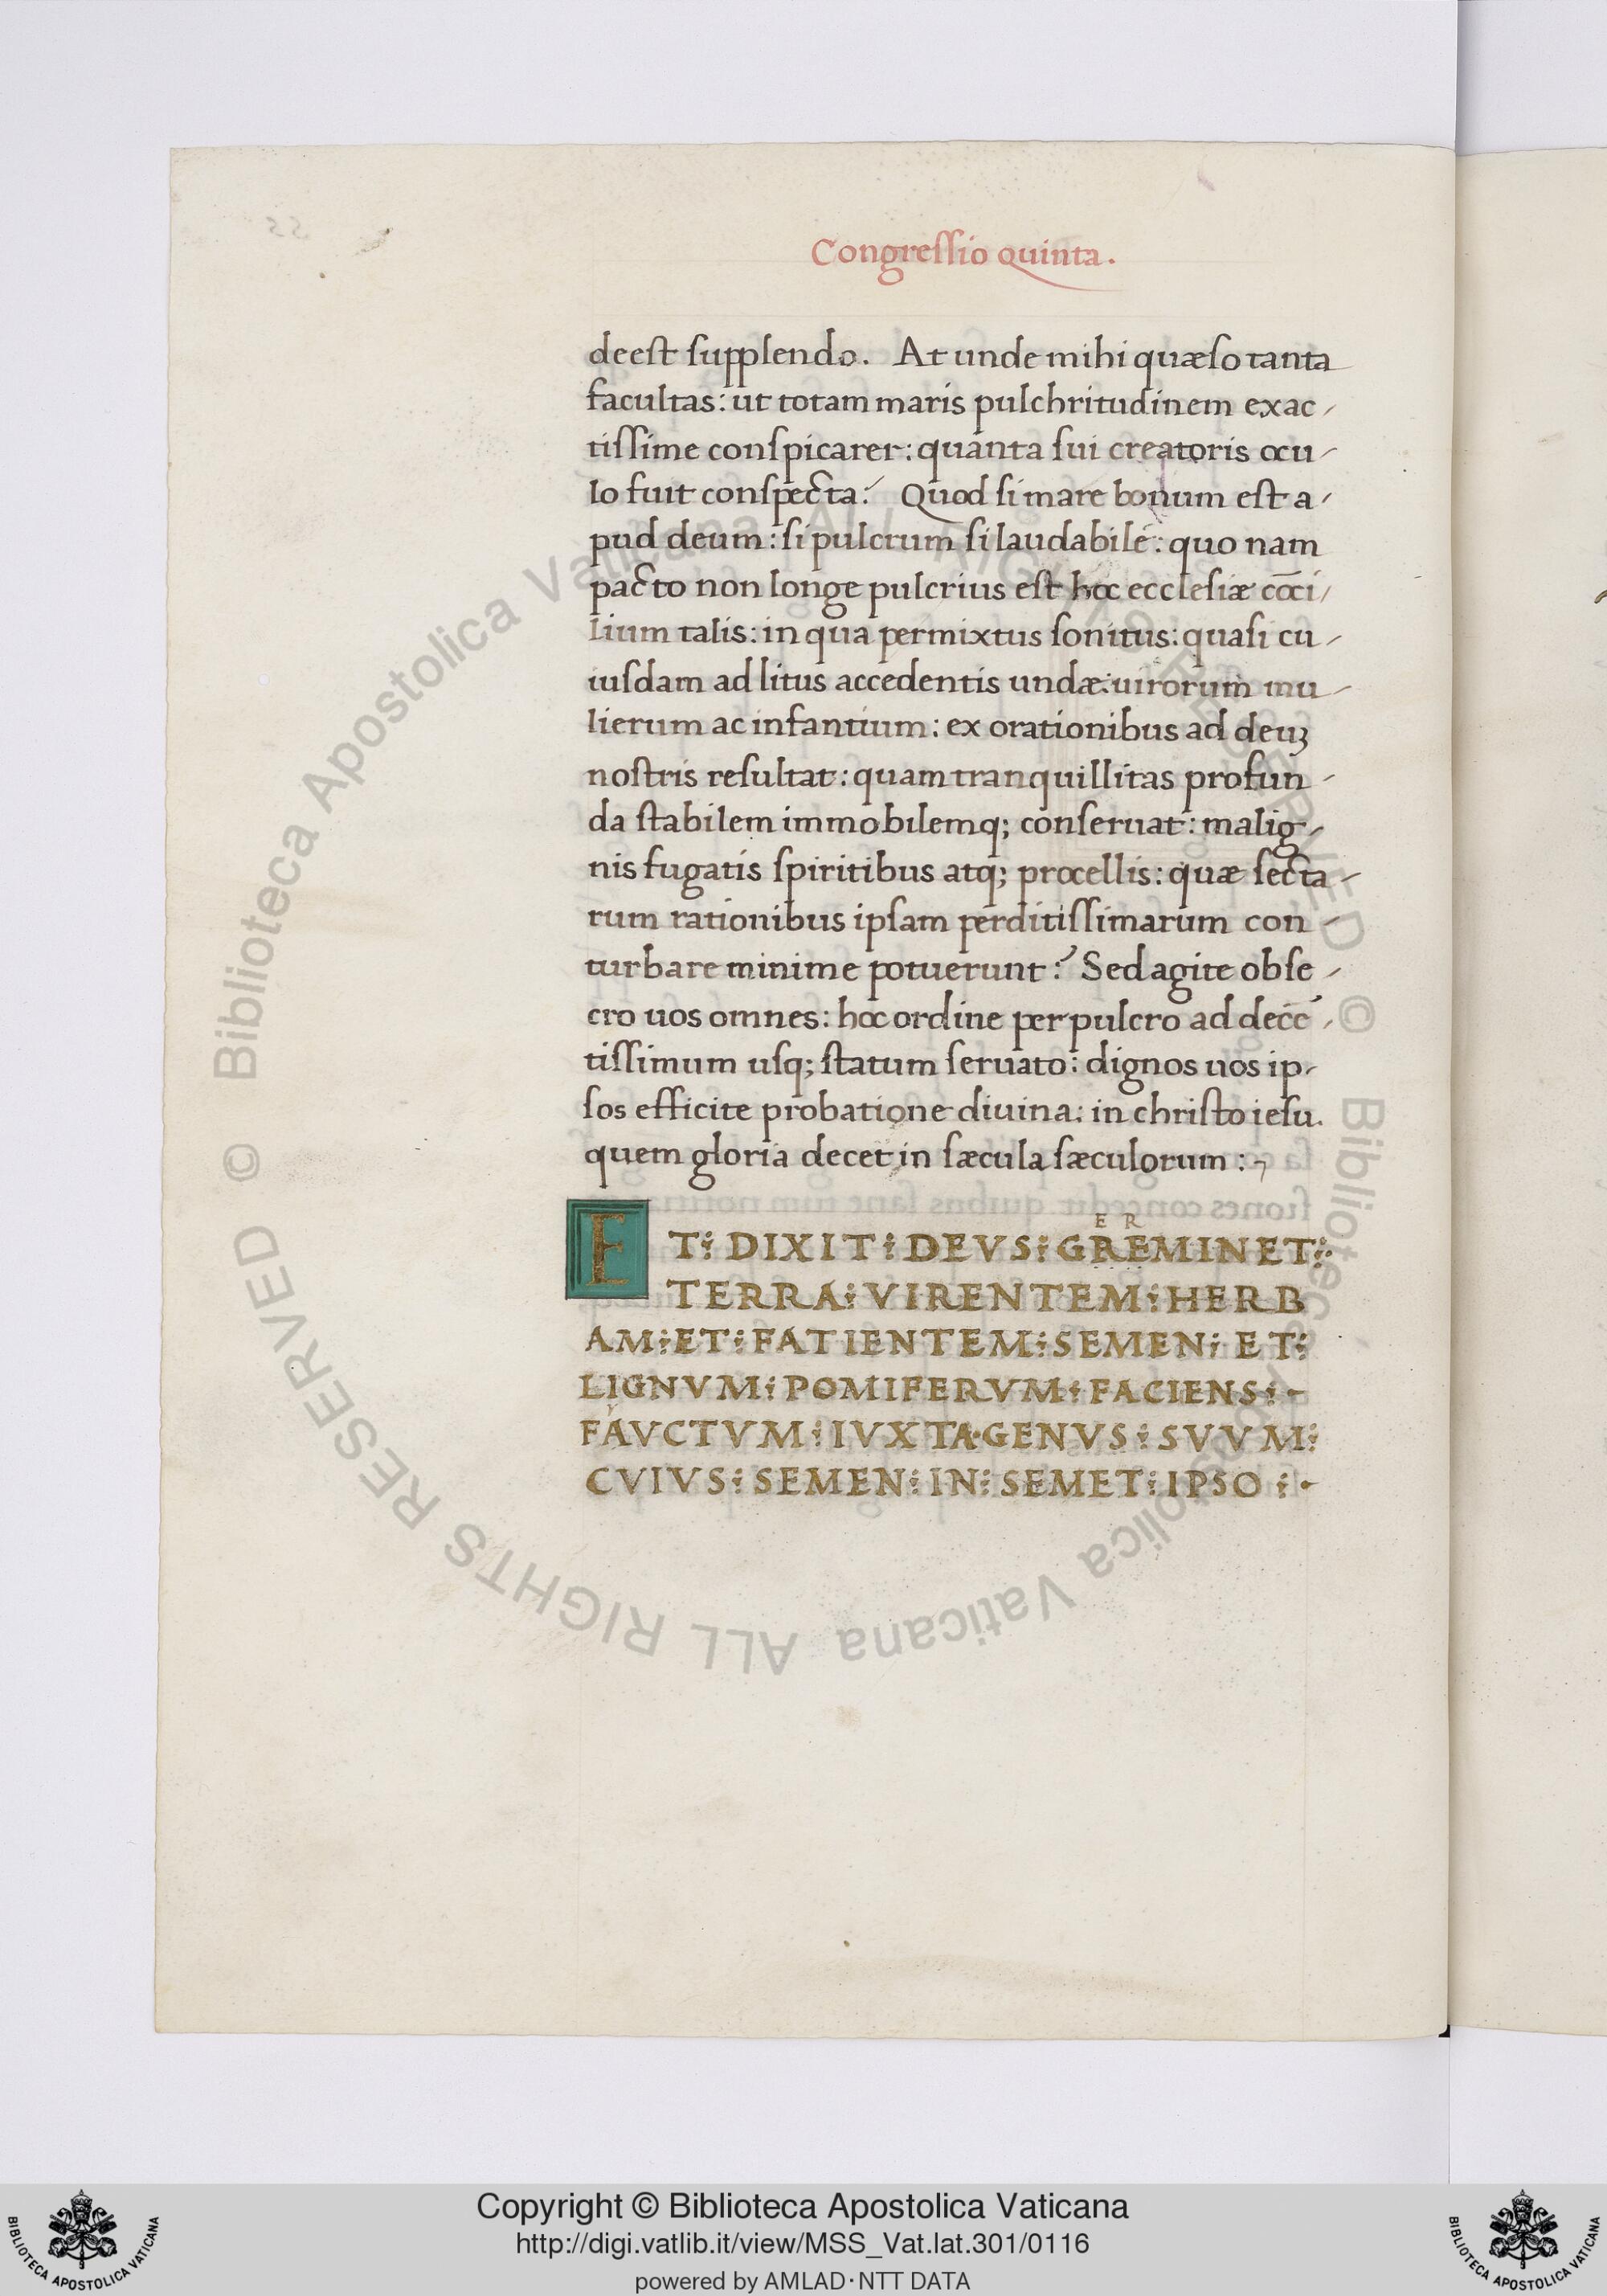 Congressio quinta.
deest supplendo. At unde mihi quæso tanta
facultas: ut totam maris pulchritudinem exac-
tissime conspicarer: quanta sui creatoris ocu-
lo fuit conspecta? Quod si mare bonum est a-
pud deum: si pulcrum si laudabile: quo nam
pacto non longe pulcrius est hoc ecclesiæ cōci-
lium talis: in qua permixtus sonitus: quasi cu-
iusdam ad litus accedentis undæ: uirorum mu-
lierum ac infantium: ex orationibus ad deuꝫ
nostris resultat: quam tranquillitas profun-
da stabilem immobilemq; conseruat: malig-
nis fugatis spiritibus atq; procellis: quæ secta-
rum rationibus ipsam perditissimarum con-
turbare minime potuerunt:? Sed agite obse-
cro uos omnes: hoc ordine perpulcro ad decē-
tissimum usq; statum seruato: dignos uos ip-
sos efficite probatione diuina: in christo iesu.
quem gloria decet in sæcula sæculorum:
E R
ET: DIXIT: DEVS: GREMINET:
TERRA: VIRENTEM: HERB
AM: ET: FATIENTEM: SEMEN: ET:
LIGNVM: POMIFERVM: FACIENS:-
FAVCTVM: IVXTA·GENVS: SVVM:
CVIVS: SEMEN: IN: SEMET: IPSO:·
© Biblioteca Apostolica Vaticana ALL RIGHTS RESERVED © Biblioteca Apostolica Vaticana ALL RIGHTS RESERVED
Copyright © Biblioteca Apostolica Vaticana
http://digi.vatlib.it/view/MSS_Vat.lat.301/0116
powered by AMLAD·NTT DATA
BIBLIOTECA APOSTOLICA VATICANA
BIBLIOTECA APOSTOLICA VATICANA